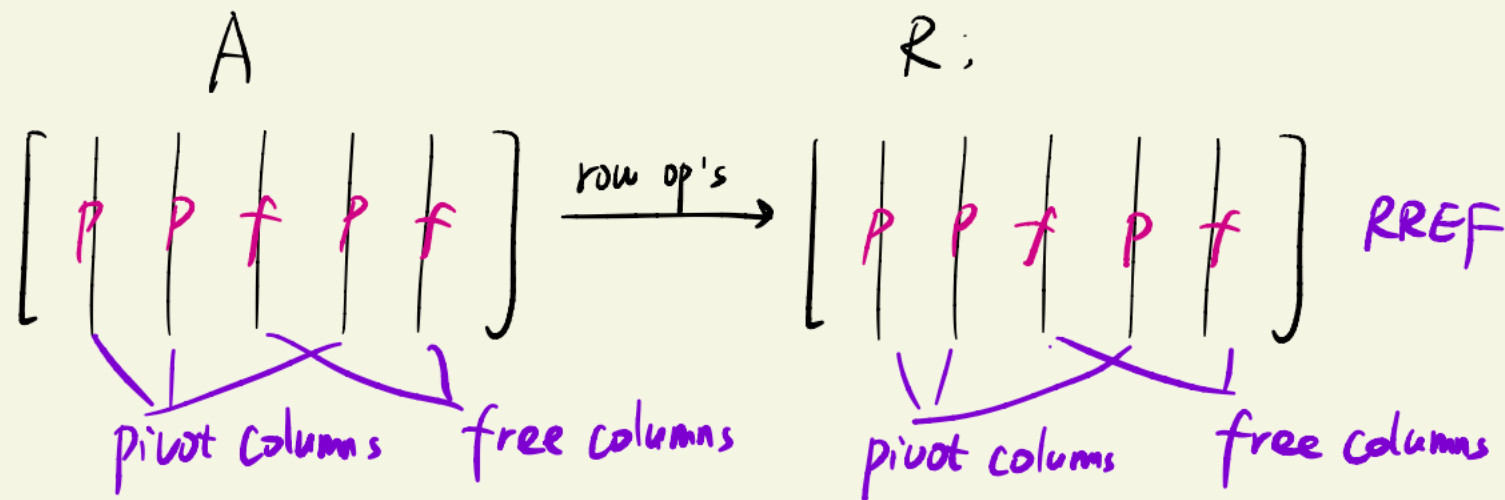 A R:
row op's
p p f p f p p f p f RREF
pivot columns free columns pivot colums free columns